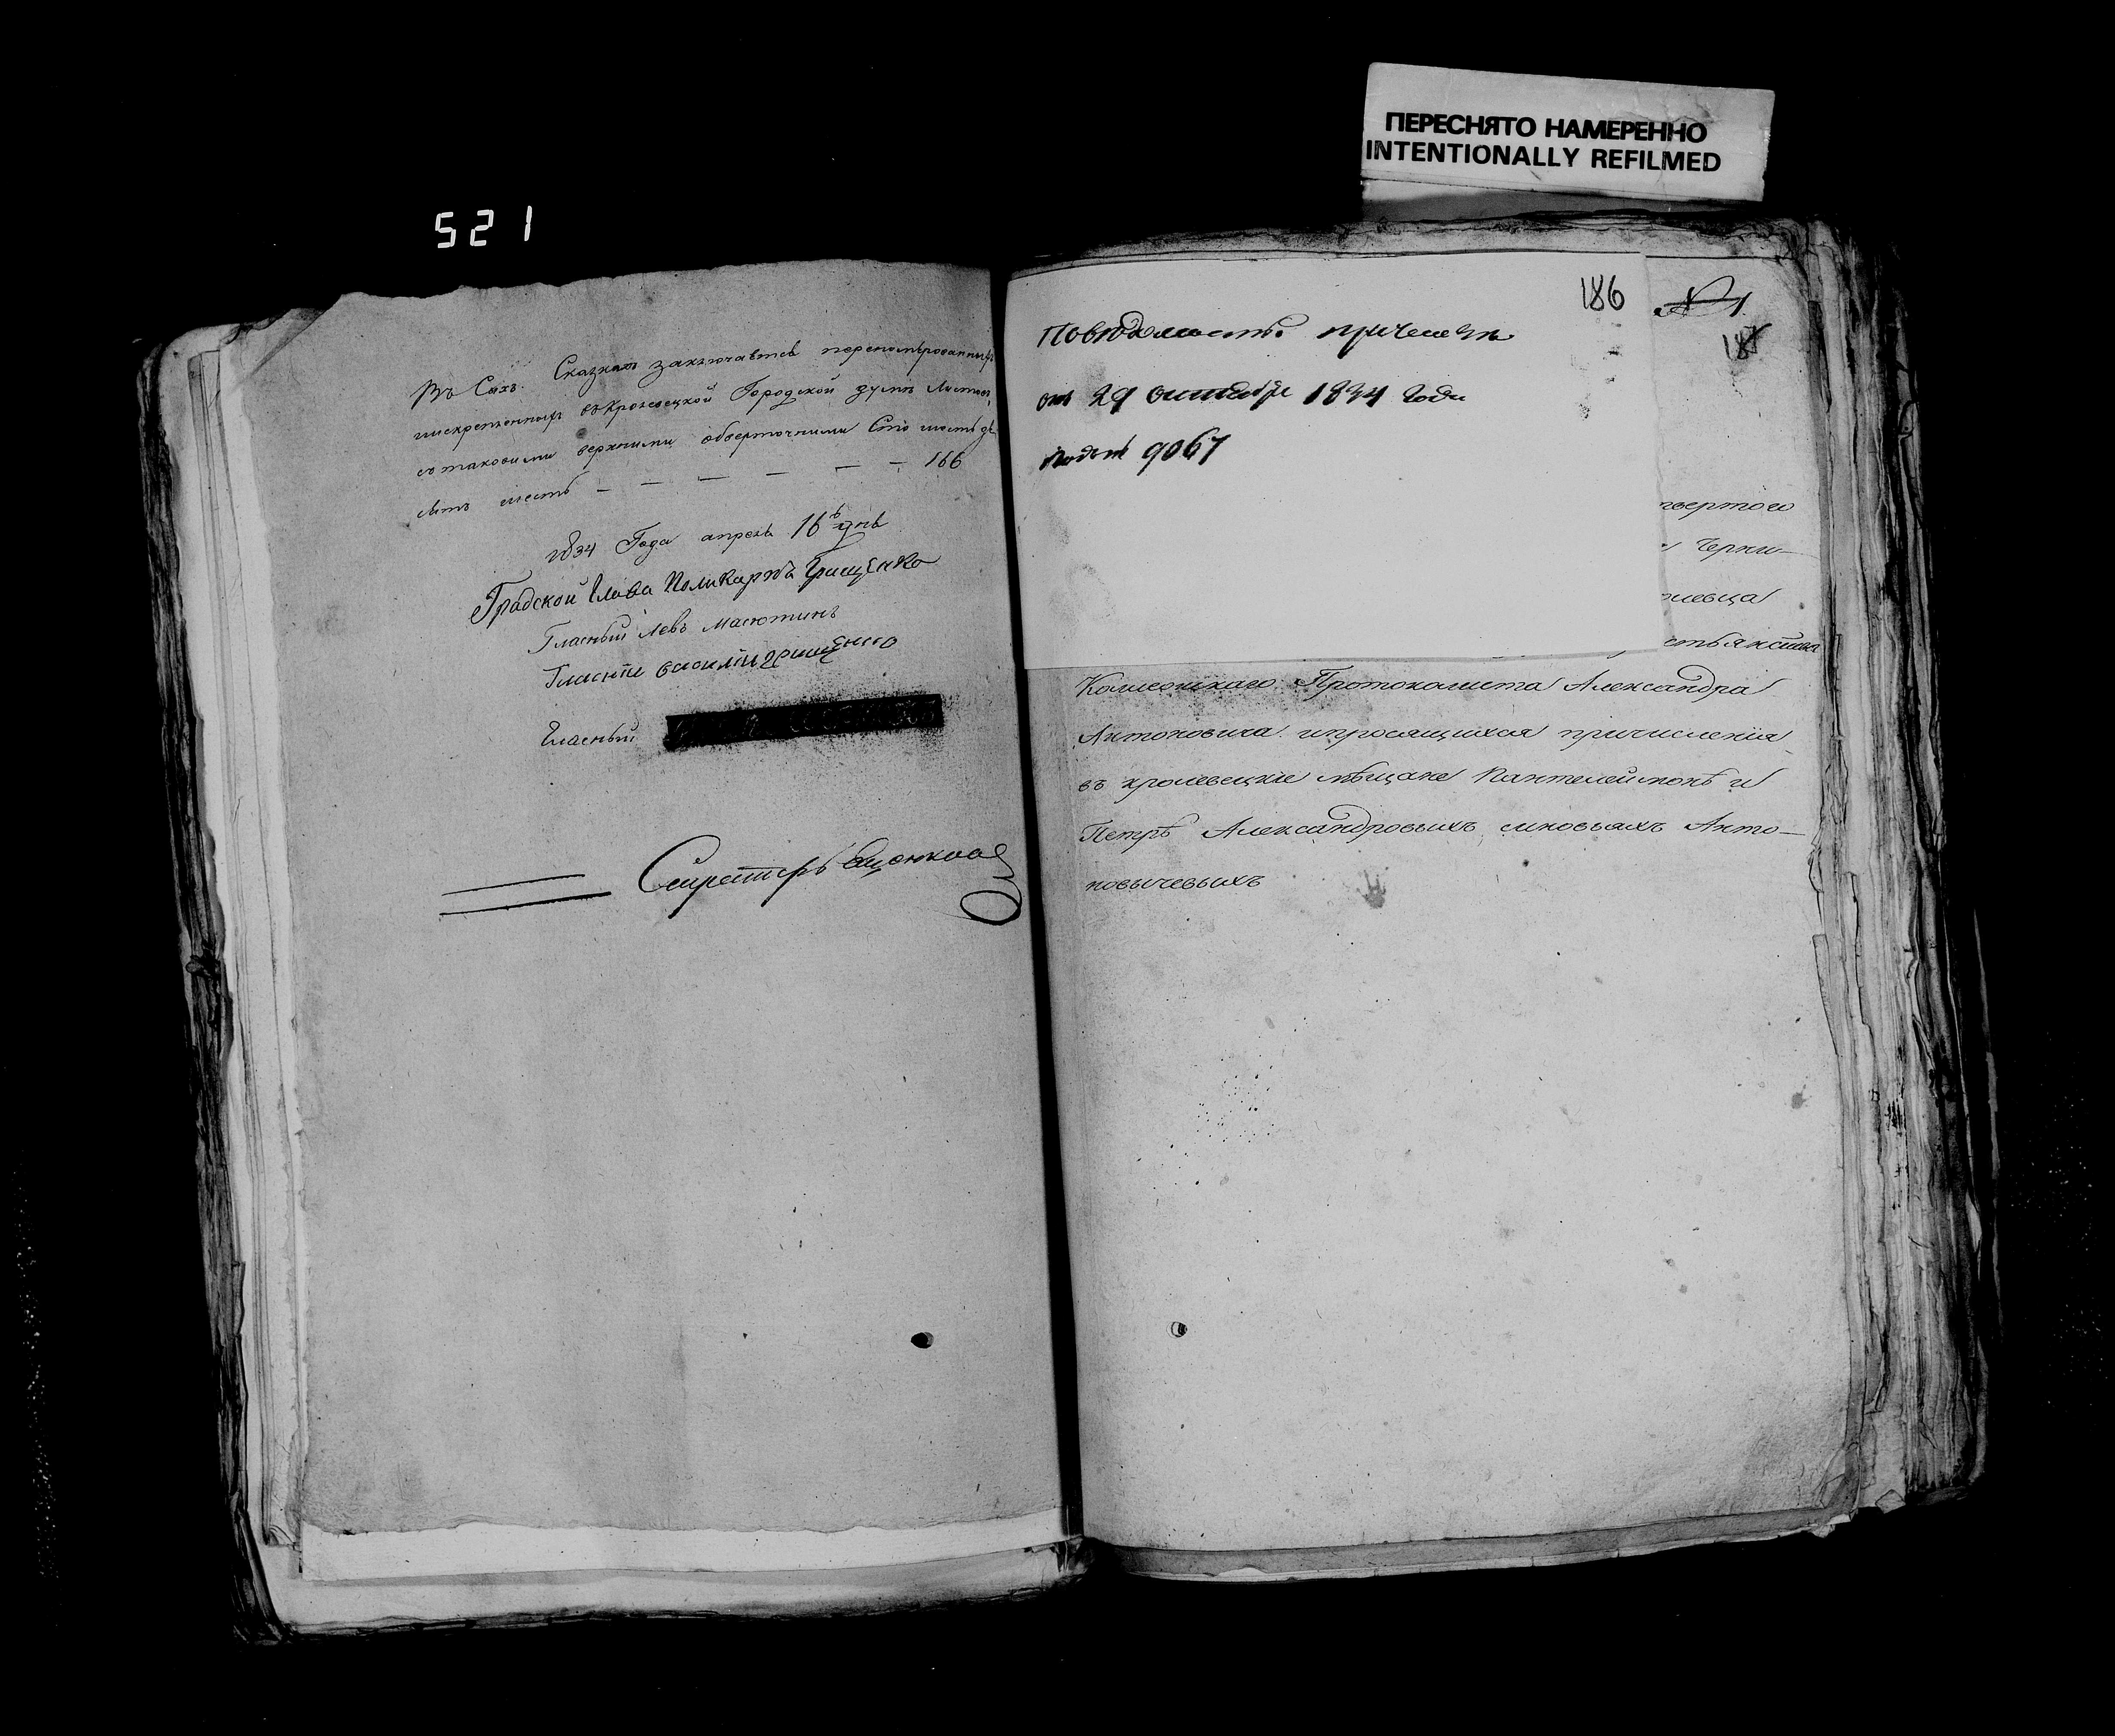 ПЕРЕСНЯТО НАМЕРЕННО
INTENTIONALLY REFILMED
521
Въ Сихъ Сказкахъ заключается перенумерованныхъ
искрепленныхъ въ Кролевецкой Городской думе Листовъ
стаковими верхними оберточними Сто шестьде
сятъ шесть — — — — — — 166
1834 Года апреля 16ъ дня
Градской Глава Поликарпъ Грищенко
Гласный Левъ Масютинъ
Гласнти василти грищенко
Гласный
Секретарь
186
причислен
отъ 29 октября 1834 Года
9067
№ 1.
187
твертого
Черни—
левца
Коллежскаго Протоколиста Александра
Антоновича ипросящихся причисления
въ кролевецкие мѣщане Пантелеймонѣ и
Петрѣ Александровыхъ сыновьяхъ Анто—
новычевыхъ